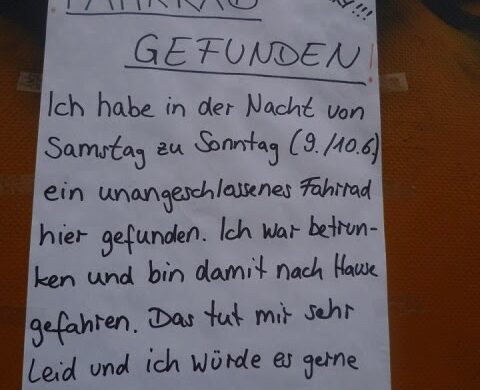 FAHRRAD
GEFUNDEN!
Ich habe in der Nacht von
Samstag zu Sonntag (9./10.6)
ein unangeschlossenes Fahrrad
hier gefunden. Ich war betrun-
ken und bin damit nach Hause
gefahren. Das tut mir sehr
Leid und ich würde es gerne